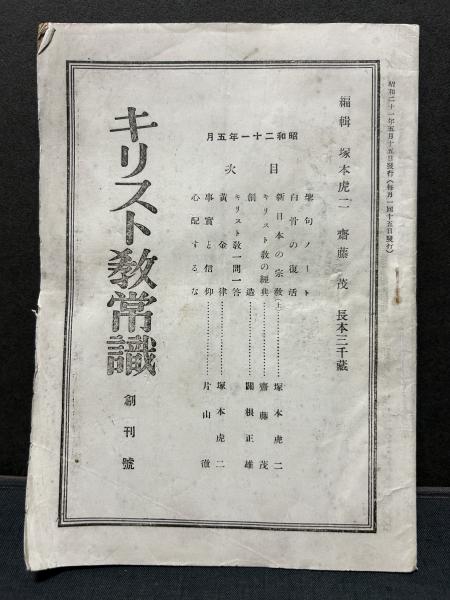 昭和二十一年五月十五日發行(每月一回十五日發行)
編輯 塚本虎二 齋藤茂 長本三千藏
昭和二十一年五月
目次
聖句ノート
白骨の復活
新日本の宗教(上)…………塚本虎二
キリスト教の經典…………齋藤茂
創造…………關根正雄
キリスト教一問一答
黃金律…………塚本虎二
事實と信仰…………片山徹
心配するな
キリスト敎常識 創刊號